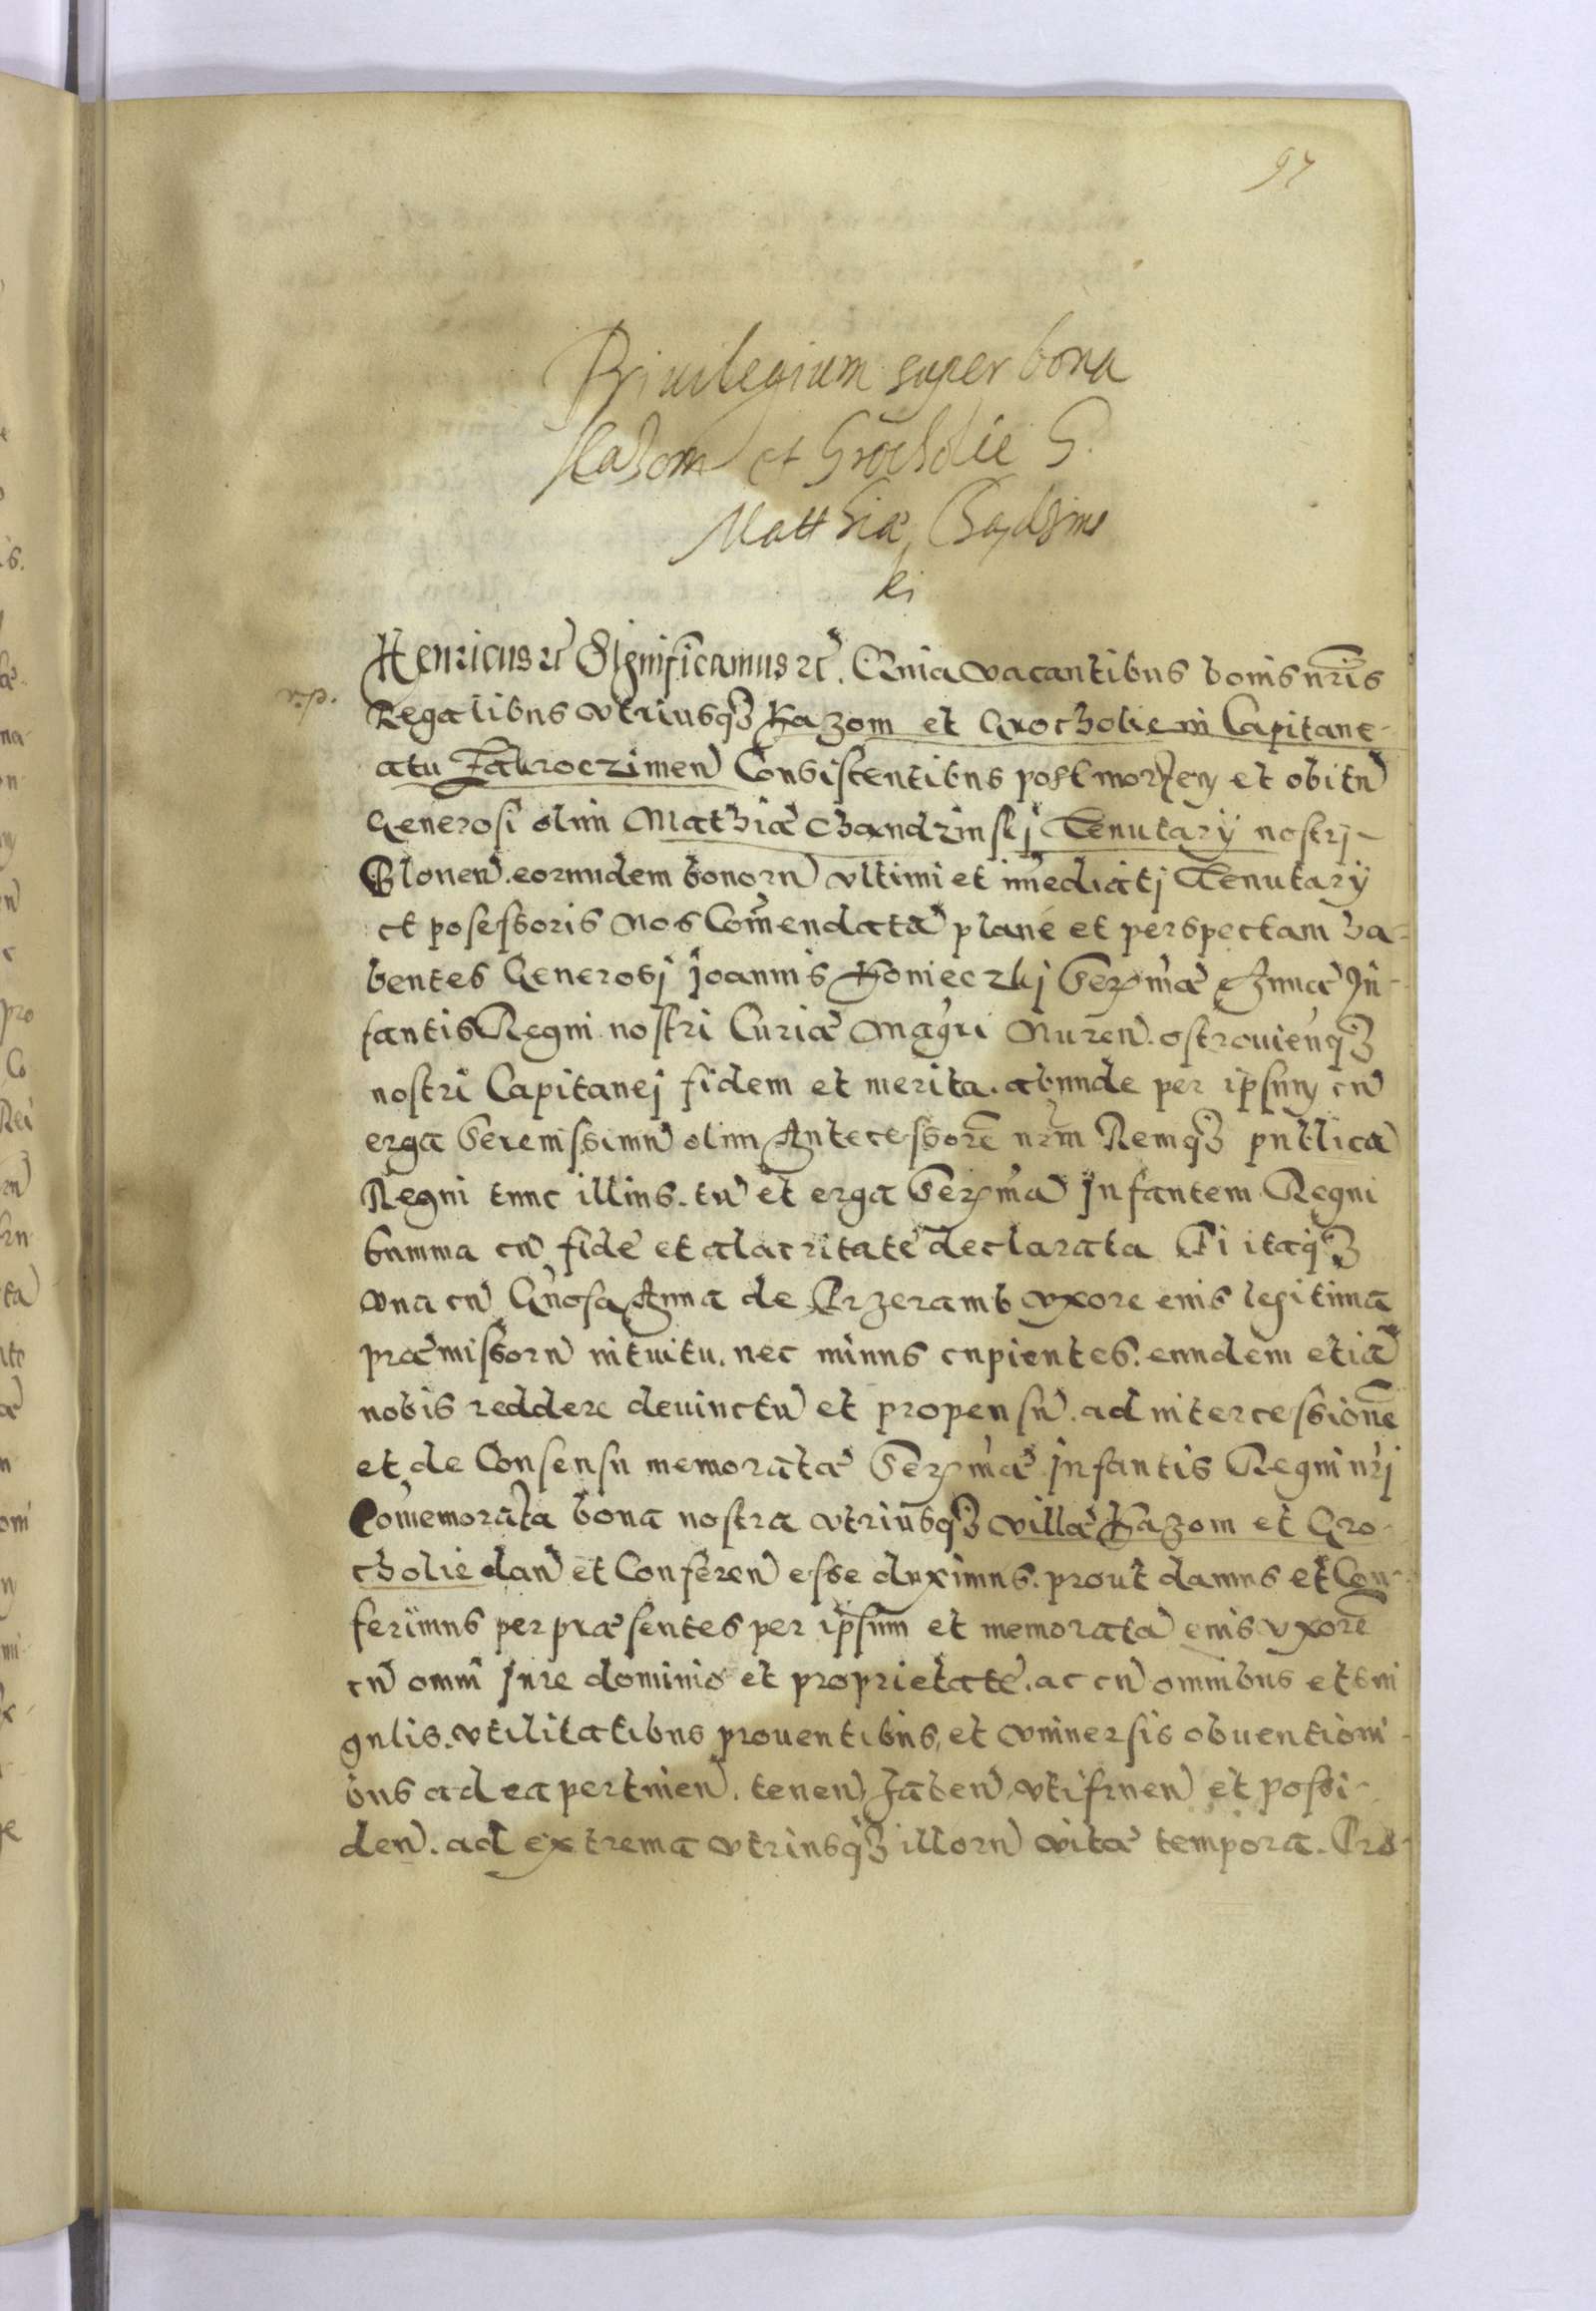 97
Priuilegium super bona
Kasom et Grochólie G.
Matthiæ Chądzins
ki
v.p.
Henricus etc̃ Significamus etc̃. Quia vacantibus bonis nr̃is
Regalibus vtriusq3 Kazom et Grocholie in Capitane-
atu Zakroczimen̄ Consistentibus post mortem et obitũ
Generosi olim Mathiæ Chandzinskj Tenutarÿ nostrj
Blonen̄. eorundem bonorũ vltimi et im̃ediatj Tenutarÿ
et posessoris Nos Com̃endatã plane et perspectam ha-
bentes Generosj Joannis Konieczkj Serm̃æ Annæ In-
fantis Regni nostri Curiæ Magr̃i Nuren̄. ostrouien̄q3
nostri Capitanej fidem et merita. abunde per ipsum cũ
erga Serenissimũ olim Antecessorẽ nr̃m Remq3 publicã
Regni tunc illius. tũ et erga Serm̃ã Infantem Regni
summa cũ fide et alacritate declarata Ei itaq3
vna cũ Gñosa Anna de Przeramb vxore eius legitima
præmissorũ intuitu. nec minus cupientes. eundem etiã
nobis reddere deuinctũ et propensũ. ad intercessionẽ
et de Consensu memoratæ Serm̃æ Infantis Regni nr̃j
Com̃emorata bona nostra vtriusq3 villæ Kazom et Gro-
cholie dan̄ et Conferen̄ esse duximus. prout damus et Con-
ferimus per præsentes per ip̃sum et memoratã eius vxorẽ
cũ omni Iure dominio et proprietate. ac cũ omnibus et sin
gulis. vtilitatibus prouentibus, et vniuersis obuentioni-
bus ad ea pertinen̄. tenen̄, haben̄, vtifruen̄ et possi-
den̄. ad extrema vtriusq3 illorũ vitæ tempora. Pro-